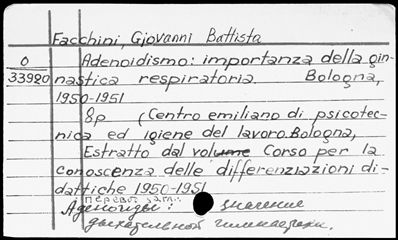 Facchini, Gjovanni Battista
O Adenoidismo: importanza della gin-
33920 nastica respiratoria. Bologna,
1950-1951
8p (Centro emiliano di psicotec-
nica ed igiene del lavoro. Bologna,
Estratto dal volume Corso per la
conoscenza delle differenziazioni di-
dattiche 1950-1951
перевод загл.
Аденоиды: значение
дыхательной гимнастики.